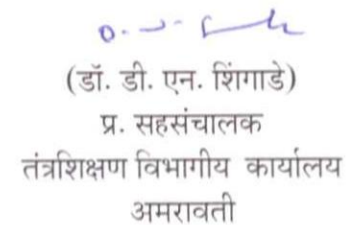 (डॉ. डी. एन. शिंगाडे)
प्र. सहसंचालक
तंत्रशिक्षण विभागीय कार्यालय
अमरावती